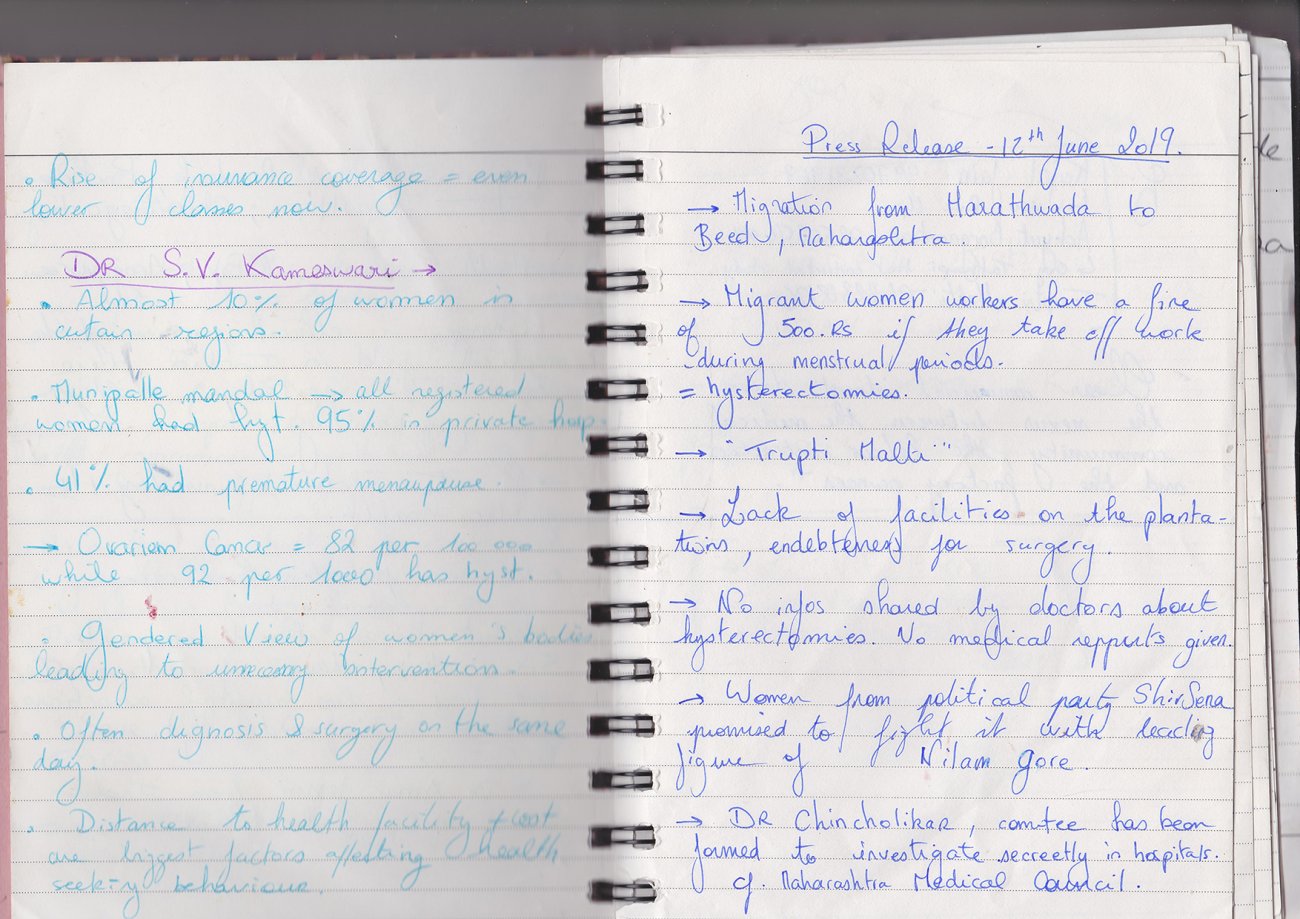 • Rise of insurance coverage = even
lower classes now.
DR S.V. Kameswari →
• Almost 10% of women in
certain regions.
• Munipalle mandal → all registered
women had hyt. 95% in private hosp.
• 41% had premature menaupause.
→ Ovariem Cancer = 82 per 100 000
while 92 per 1000 has hyst.
• Gendered View of women's bodies
leading to unnecessary interventions.
• Often diagnosis & surgery on the same
day.
• Distance to health facility + cost
are biggest factors affecting health
seeking behaviour.
Press Release - 12th June 2019.
→ Migration from Marathwada to
Beed, Maharashtra.
→ Migrant women workers have a fine
of 500.RS if they take off work
during menstrual periods.
= hysterectomies.
→ "Trupti Malti"
→ Lack of facilities on the planta-
tions, endebtement for surgery.
→ No infos shared by doctors about
hysterectomies. No medical repports given.
→ Women from political party ShivSena
promised to fight it with leading
figure of Nilam Gore.
→ DR Chincholikar, comitee has been
formed to investigate secreetly in hospitals.
cf. Maharashtra Medical Council.